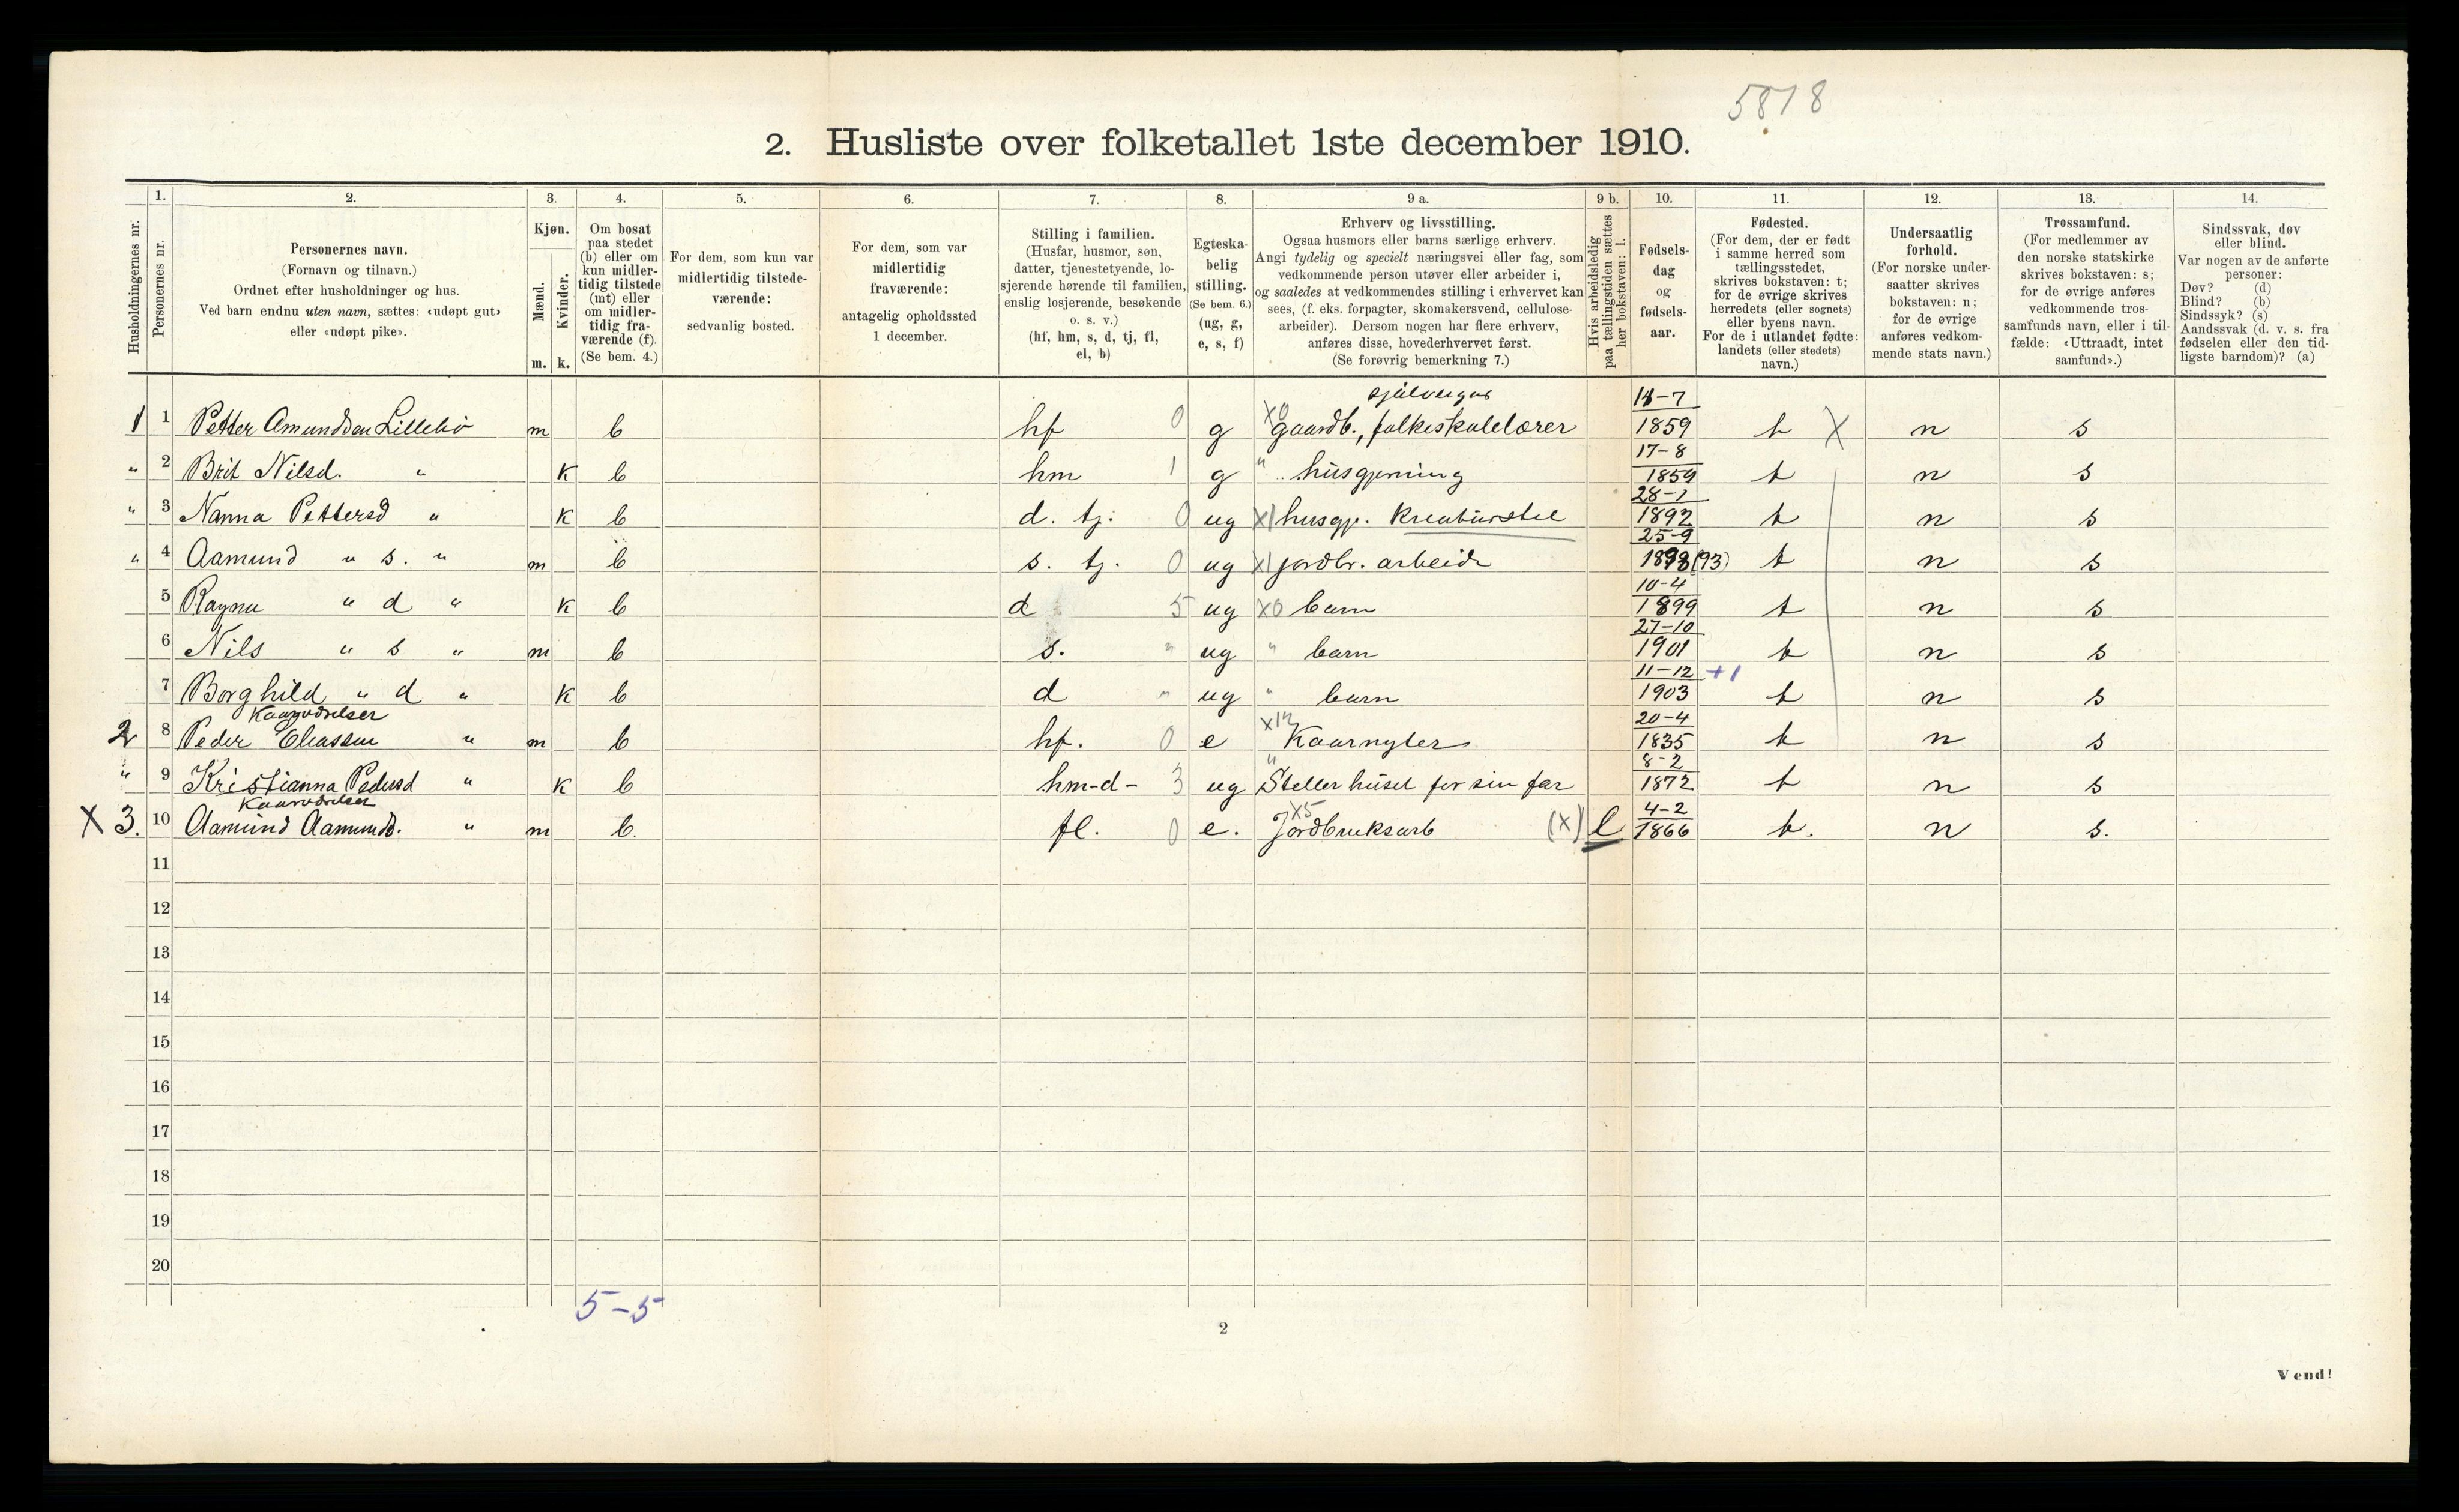 5818
2. Husliste over folketallet 1ste december 1910.
Husholdningernes nr.
1.
Personernes nr.
2.
Personernes navn.
(Fornavn og tilnavn.)
Ordnet efter husholdninger og hus.
Ved barn endnu uten navn, sættes: «udøpt gut»
eller «udøpt pike».
3.
Kjøn.
Mænd.
Kvinder.
m. k.
4.
Om bosat
paa stedet
(b) eller om
kun midler-
tidig tilstede
(mt) eller
om midler-
tidig fra-
værende (f).
(Se bem. 4.)
5.
For dem, som kun var
midlertidig tilstede-
værende:
sedvanlig bosted.
6.
For dem, som var
midlertidig
fraværende:
antagelig opholdssted
1 december.
7.
Stilling i familien.
(Husfar, husmor, søn,
datter, tjenestetyende, lo-
sjerende hørende til familien,
enslig losjerende, besøkende
o. s. v.)
(hf, hm, s, d, tj, fl,
el, b)
8.
Egteska-
belig
stilling.
(Se bem. 6.)
(ug, g,
e, s, f)
9 a.
Erhverv og livsstilling.
Ogsaa husmors eller barns særlige erhverv.
Angi tydelig og specielt næringsvei eller fag, som
vedkommende person utøver eller arbeider i,
og saaledes at vedkommendes stilling i erhvervet kan
sees, (f. eks. forpagter, skomakersvend, cellulose-
arbeider). Dersom nogen har flere erhverv,
anføres disse, hovederhvervet først.
(Se forøvrig bemerkning 7.)
9 b.
Hvis arbeidsledig
paa tællingstiden sættes
her bokstaven: l.
10.
Fødsels-
dag
og
fødsels-
aar.
11.
Fødested.
(For dem, der er født
i samme herred som
tællingsstedet,
skrives bokstaven: t;
for de øvrige skrives
herredets (eller sognets)
eller byens navn.
For de i utlandet fødte:
landets (eller stedets)
navn.)
12.
Undersaatlig
forhold.
(For norske under-
saatter skrives
bokstaven: n;
for de øvrige
anføres vedkom-
mende stats navn.)
13.
Trossamfund.
(For medlemmer av
den norske statskirke
skrives bokstaven: s;
for de øvrige anføres
vedkommende tros-
samfunds navn, eller i til-
fælde: «Uttraadt, intet
samfund».)
14.
Sindssvak, døv
eller blind.
Var nogen av de anførte
personer:
Døv? (d)
Blind? (b)
Sindssyk? (s)
Aandssvak (d. v. s. fra
fødselen eller den tid-
ligste barndom)? (a)
sjølveigar 18-7
1 1 Petter Amundsen Lillebø m b hf 0 g X0 gaardb., folkeskolelærer 1859 t X n s
17-8
" 2 Brit Nilsd. " k b hm 1 g " .. husgjerning 1859 t n s
28-1
" 3 Nanna Pettersd " k b d. tj. 0 ug X1 husgj. Kreaturstel 1892 t n s
25-9
" 4 Aamund " s. " m b s. tj. 0 ug X1 jordbr. arbeide 1893 (93) t n s
10-4
5 Ragna " d " k b d 5 ug X0 barn 1899 t n s
27-10
6 Nils " s " m b s. " ug " barn 1901 t n s
11-12 +1
7 Borghild " d " k b d " ug " barn 1903 t n s
20-4
2 8 Peder Eliassen " m b hf. 0 e X12 Kaarnyter 1835 t n s
8-2
" 9 Kristianna Pedersd " k b hm-d- 3 ug " Steller huset for sin far 1872 t n s
4-2
X 3. 10 Aamund Aamunds. " m b. fl. 0 e. X5 Jordbruksarb (X) l 1866 t. n s.
11
12
13
14
15
16
17
18
19
20
5-5
2
Vend!